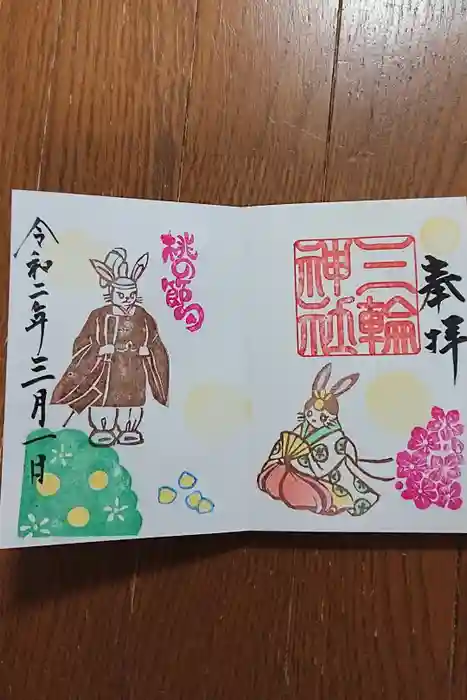 奉拝
三輪
神社
桃の節句
令和二年三月一日